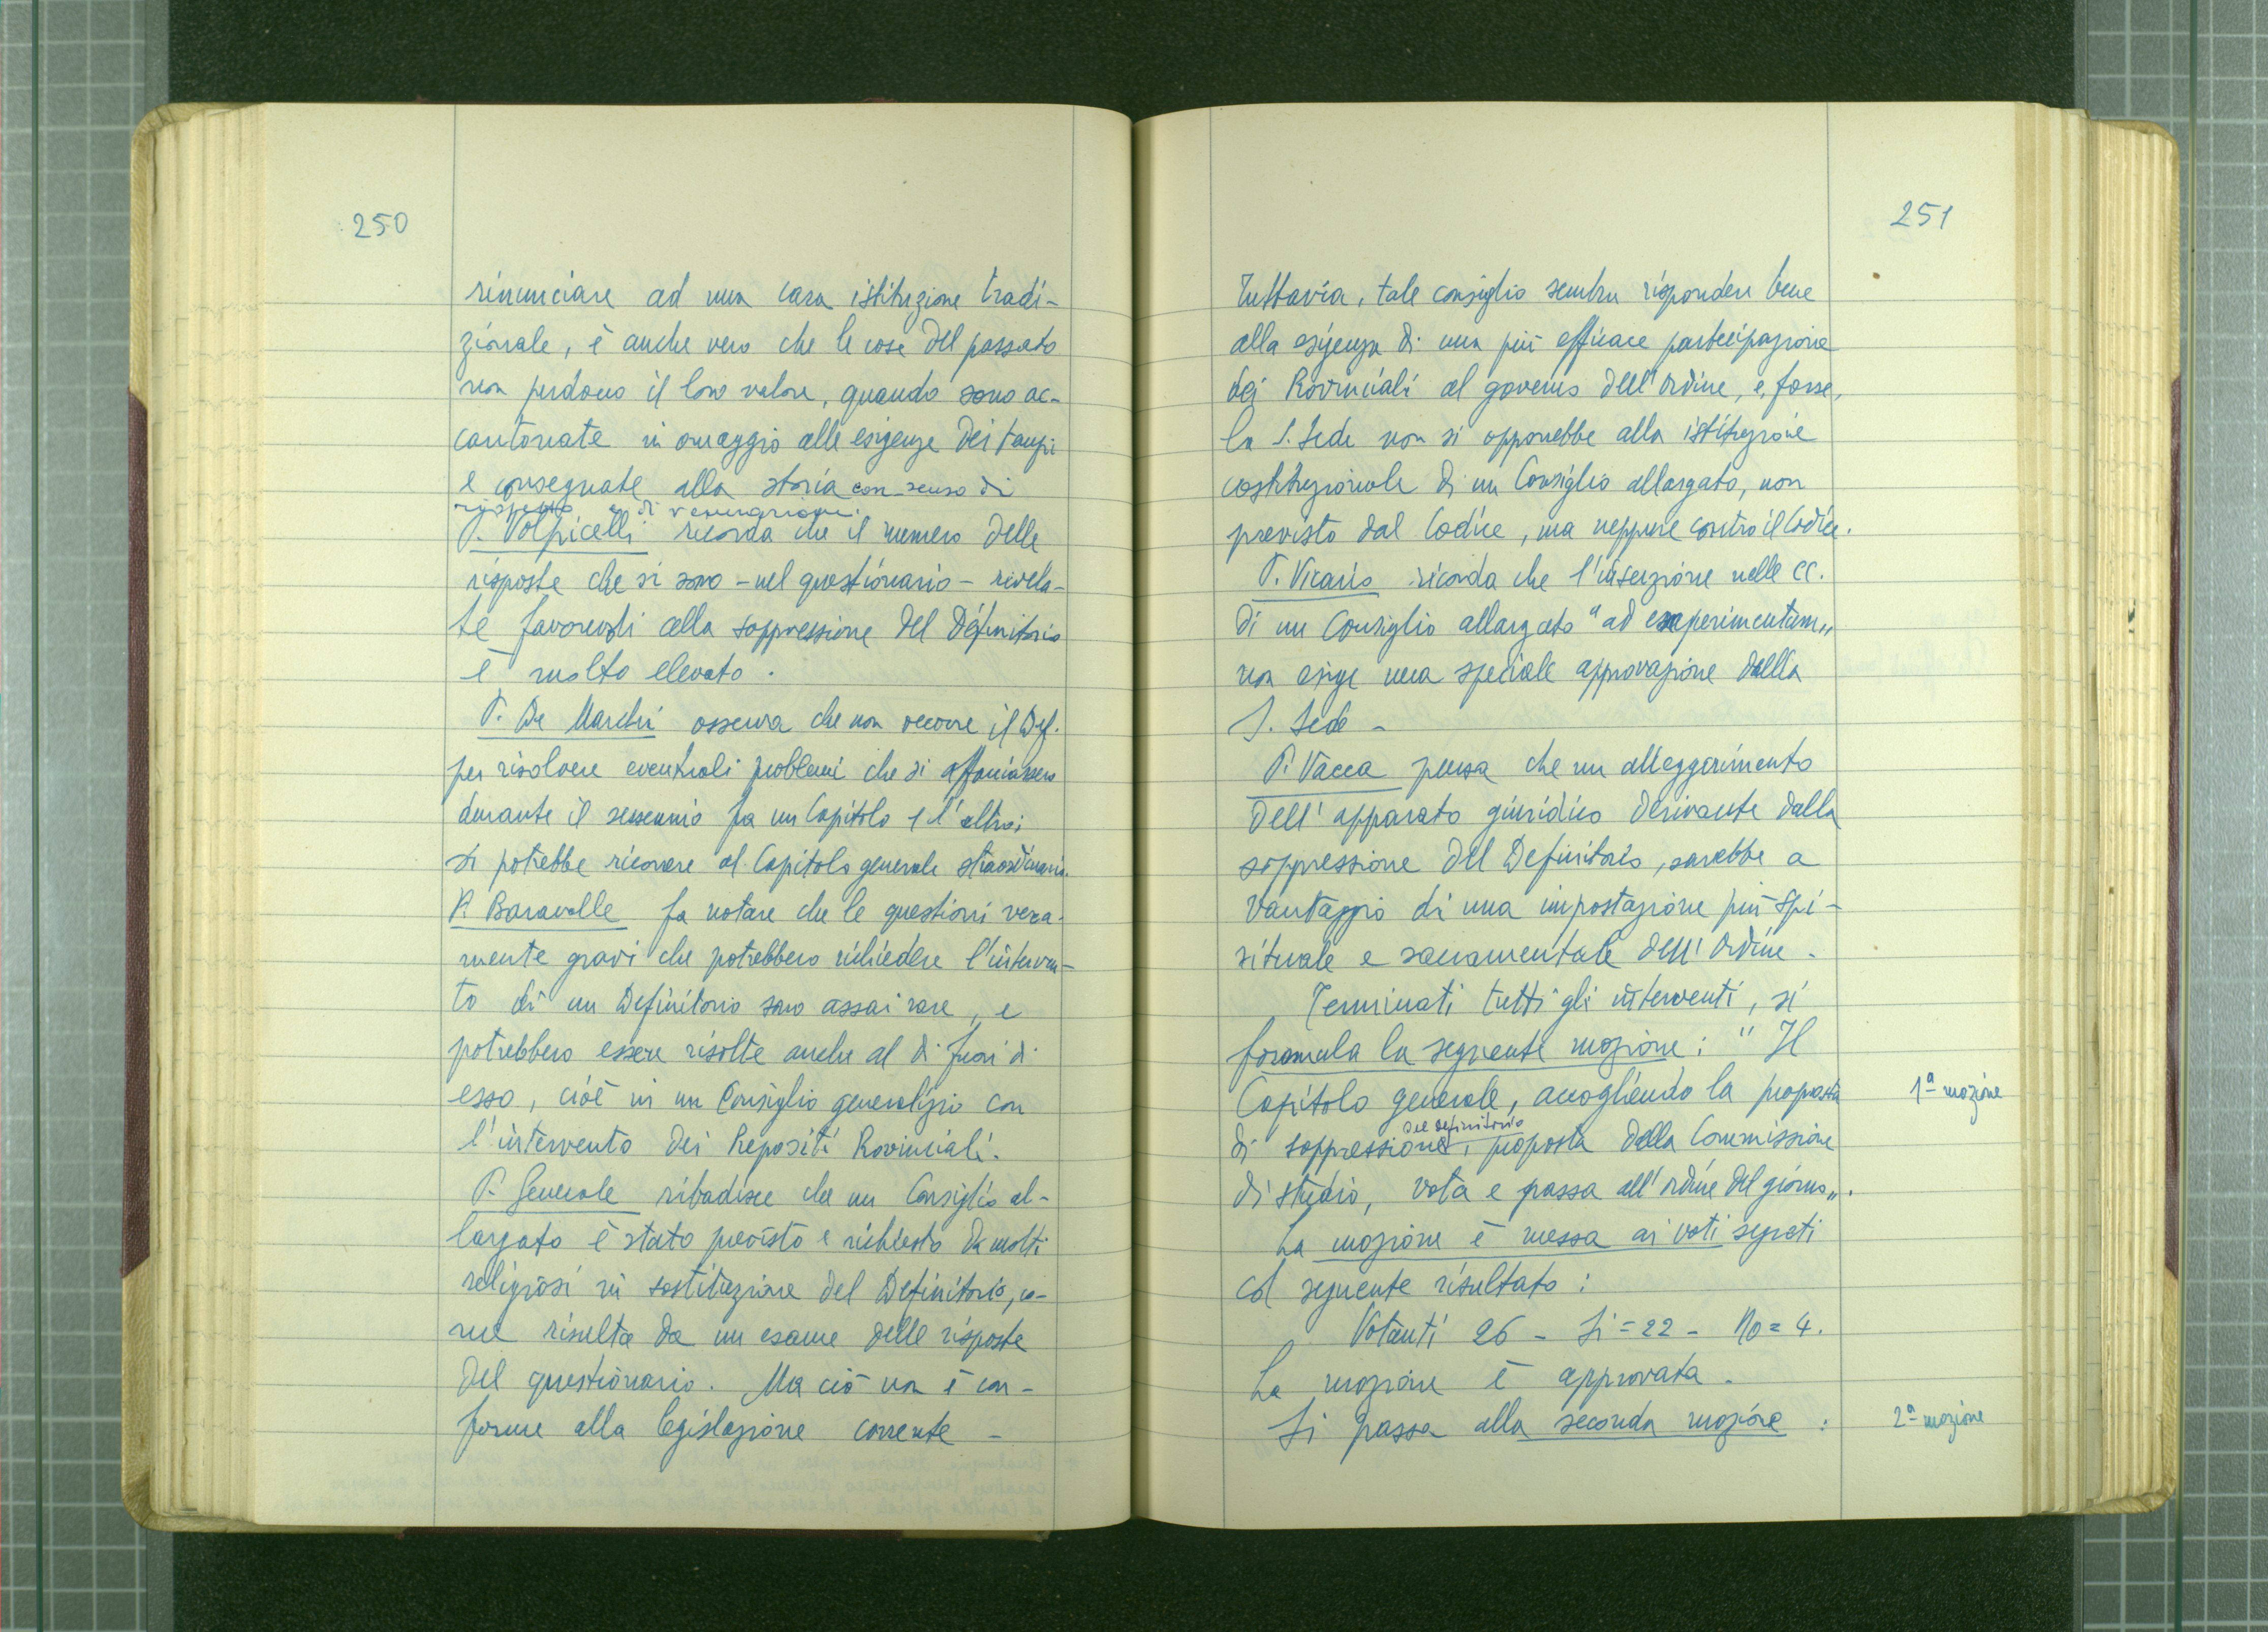 250
rinunciare ad una cara istituzione tradi-
zionale, è anche vero che le cose del passato
non perdono il loro valore, quando sono ac-
cantonate in omaggio alle esigenze dei tempi
e consegnate alla storia con senso di
rispetto e di venerazione.
P. Volpicelli ricorda che il numero delle
risposte che si sono - nel questionario - rivela-
te favorevoli alla soppressione del Definitorio
è molto elevato.
P. De Marchi osserva che non occorre il Def.
per risolvere eventuali problemi che si affacciassero
durante il sessennio fra un Capitolo e l'altro;
si potrebbe ricorrere al Capitolo generale straordinario.
P. Baravalle fa notare che le questioni vera-
mente gravi che potrebbero richiedere l'interven-
to di un Definitorio sono assai rare, e
potrebbero essere risolte anche al di fuori di
esso, cioè in un Consiglio generalizio con
l'intervento dei Prepositi Provinciali.
P. Generale ribadisce che un Consiglio al-
largato è stato previsto e richiesto da molti
religiosi in sostituzione del Definitorio, co-
me risulta da un esame delle risposte
del questionario. Ma ciò non è con-
forme alla legislazione corrente -
251
Tuttavia, tale consiglio sembra rispondere bene
alla esigenza di una più efficace partecipazione
dei Provinciali al governo dell'Ordine, e, forse,
la S. Sede non si opporrebbe alla istituzione
costituzionale di un Consiglio allargato, non
previsto dal Codice, ma neppure contro il Codice.
P. Vicario ricorda che l'inserzione nelle CC.
di un Consiglio allargato "ad experimentum"
non esige una speciale approvazione della
S. Sede -
P. Vacca pensa che un alleggerimento
dell'apparato giuridico derivante dalla
soppressione del Definitorio, sarebbe a
vantaggio di una impostazione più spi-
rituale e sacramentale dell'Ordine.
Terminati tutti gli interventi, si
formula la seguente mozione: "Il
Capitolo generale, accogliendo la proposta
1ª mozione
del definitorio
di soppressione, proposta della Commissione
di studio, vota e passa all'ordine del giorno".
La mozione è messa ai voti segreti
col seguente risultato:
Votanti 26 - Si = 22 - No = 4.
La mozione è approvata.
Si passa alla seconda mozione:
2ª mozione